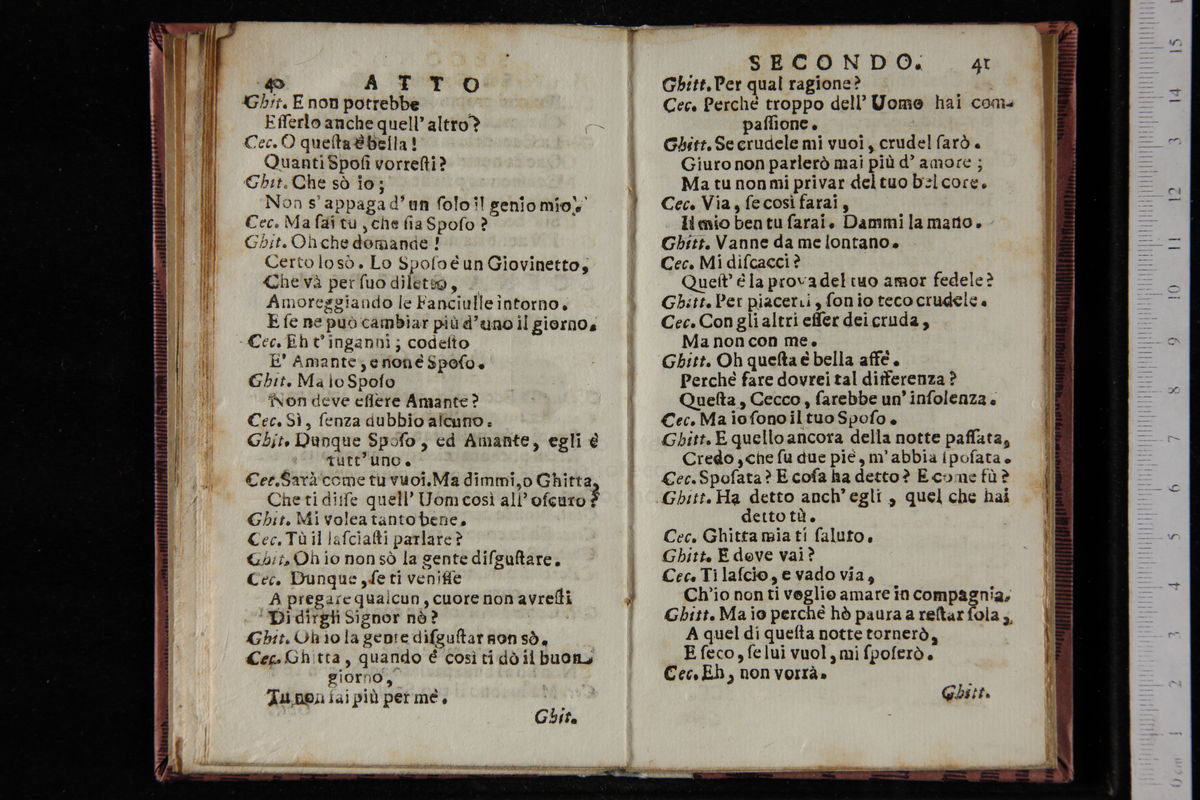 40 ATTO
Ghit. E non potrebbe
Eſſerlo anche quell' altro?
Cec. O queſta è bella!
Quanti Spoſi vorreſti?
Ghit. Che sò io;
Non s' appaga d' un ſolo il genio mio.
Cec. Ma ſai tu, che ſia Spoſo?
Ghit. Oh che domande!
Certo lo sò. Lo Spoſo è un Giovinetto,
Che và per ſuo diletto,
Amoreggiando le Fanciulle intorno.
E ſe ne può cambiar più d'uno il giorno.
Cec. Eh t' inganni; codeſto
E' Amante, e non è Spoſo.
Ghit. Ma lo Spoſo
Non deve eſſere Amante?
Cec. Sì, ſenza dubbio alcuno.
Ghit. Dunque Spoſo, ed Amante, egli è
tutt' uno.
Cec. Sarà come tu vuoi. Ma dimmi, o Ghitta,
Che ti diſſe quell' Uom così all' oſcuro?
Ghit. Mi volea tanto bene.
Cec. Tù il laſciaſti parlare?
Ghit. Oh io non sò la gente diſguſtare.
Cec. Dunque, ſe ti veniſſe
A pregare qualcun, cuore non avreſti
Di dirgli Signor nò?
Ghit. Oh io la gente diſguſtar non sò.
Cec. Ghitta, quando è così ti dò il buon
giorno,
Tu non fai più per mè.
Ghit.
SECONDO. 41
Ghitt. Per qual ragione?
Cec. Perchè troppo dell' Uomo hai com-
paſſione.
Ghitt. Se crudele mi vuoi, crudel ſarò.
Giuro non parlerò mai più d' amore;
Ma tu non mi privar del tuo bel core.
Cec. Via, ſe così farai,
Il mio ben tu ſarai. Dammi la mano.
Ghitt. Vanne da me lontano.
Cec. Mi diſcacci?
Queſt' è la prova del tuo amor fedele?
Ghitt. Per piacerti, ſon io teco crudele.
Cec. Con gli altri eſſer dei cruda,
Ma non con me.
Ghitt. Oh queſta è bella affè.
Perchè fare dovrei tal differenza?
Queſta, Cecco, ſarebbe un' inſolenza.
Cec. Ma io ſono il tuo Spoſo.
Ghitt. E quello ancora della notte paſſata,
Credo, che ſu due piè, m' abbia ſpoſata.
Cec. Spoſata? E coſa ha detto? E come fù?
Ghitt. Ha detto anch' egli, quel che hai
detto tù.
Cec. Ghitta mia ti ſaluto.
Ghitt. E dove vai?
Cec. Ti laſcio, e vado via,
Ch'io non ti voglio amare in compagnia.
Ghitt. Ma io perchè hò paura a reſtar ſola,
A quel di queſta notte tornerò,
E ſeco, ſe lui vuol, mi ſpoſerò.
Cec. Eh, non vorrà.
Ghitt.